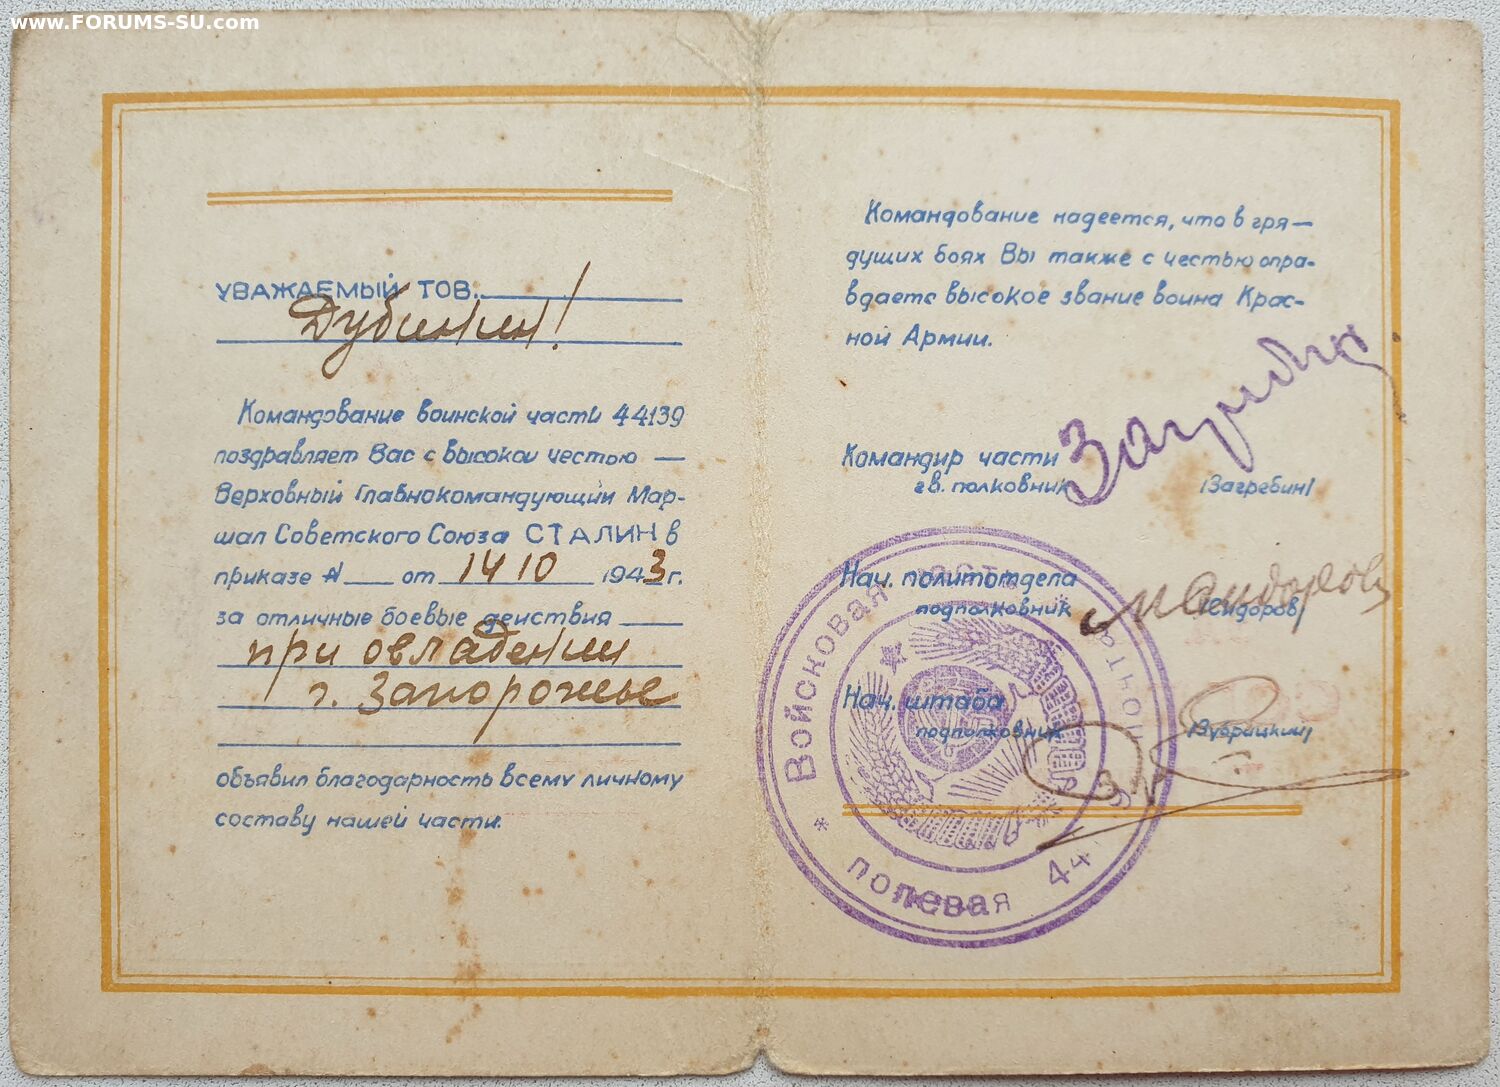 www.FORUMS-SU.com
УВАЖАЕМЫЙ ТОВ.
Дубинин!
Командование воинской части 44139
поздравляет Вас с высокой честью —
Верховный Главнокомандующий Мар-
шал Советского Союза СТАЛИН в
приказе № от 14 10 1943 г.
за отличные боевые действия
при овладении
г. Запорожье
объявил благодарность всему личному
составу нашей части.
Командование надеется, что в гря-
дущих боях Вы также с честью оправ-
даете высокое звание воина Крас-
ной Армии.
Командир части
гв. полковник /Загребин/
Нач. политотдела
подполковник
Нач. штаба
подполковник
Войсковая часть
полевая почта